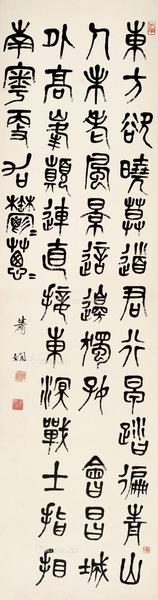 東方欲曉莫道君行早踏遍青山
人未老風景這邊獨好 會昌城
外高峯顛連直接東溟戰士指看
南粵更加鬱〻蔥〻
蕭嫻